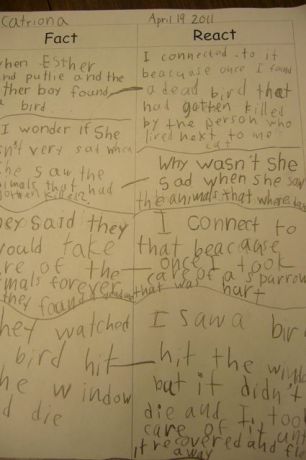 Catriona April 19 2011
Fact React
when Esther
and puttie and the
other boy found
a bird
I connected to it
beacause once I found
a dead bird that
had gotten killed
by the person who
lived next to me
cat
I wonder if she
isn't very sad when
she saw the
animals that had
gotten killed?
Why wasn't she
sad when she saw
the animals that where dead
they said they
would take
care of the
animals forever
they found
I connect to
that beacause
once I took
care of a sparrow
that was hurt
they watched
bird hit
the window
and die
I saw a bird
hit the window
but it didn't
die and I took
care of it until
it recovered and flew
away